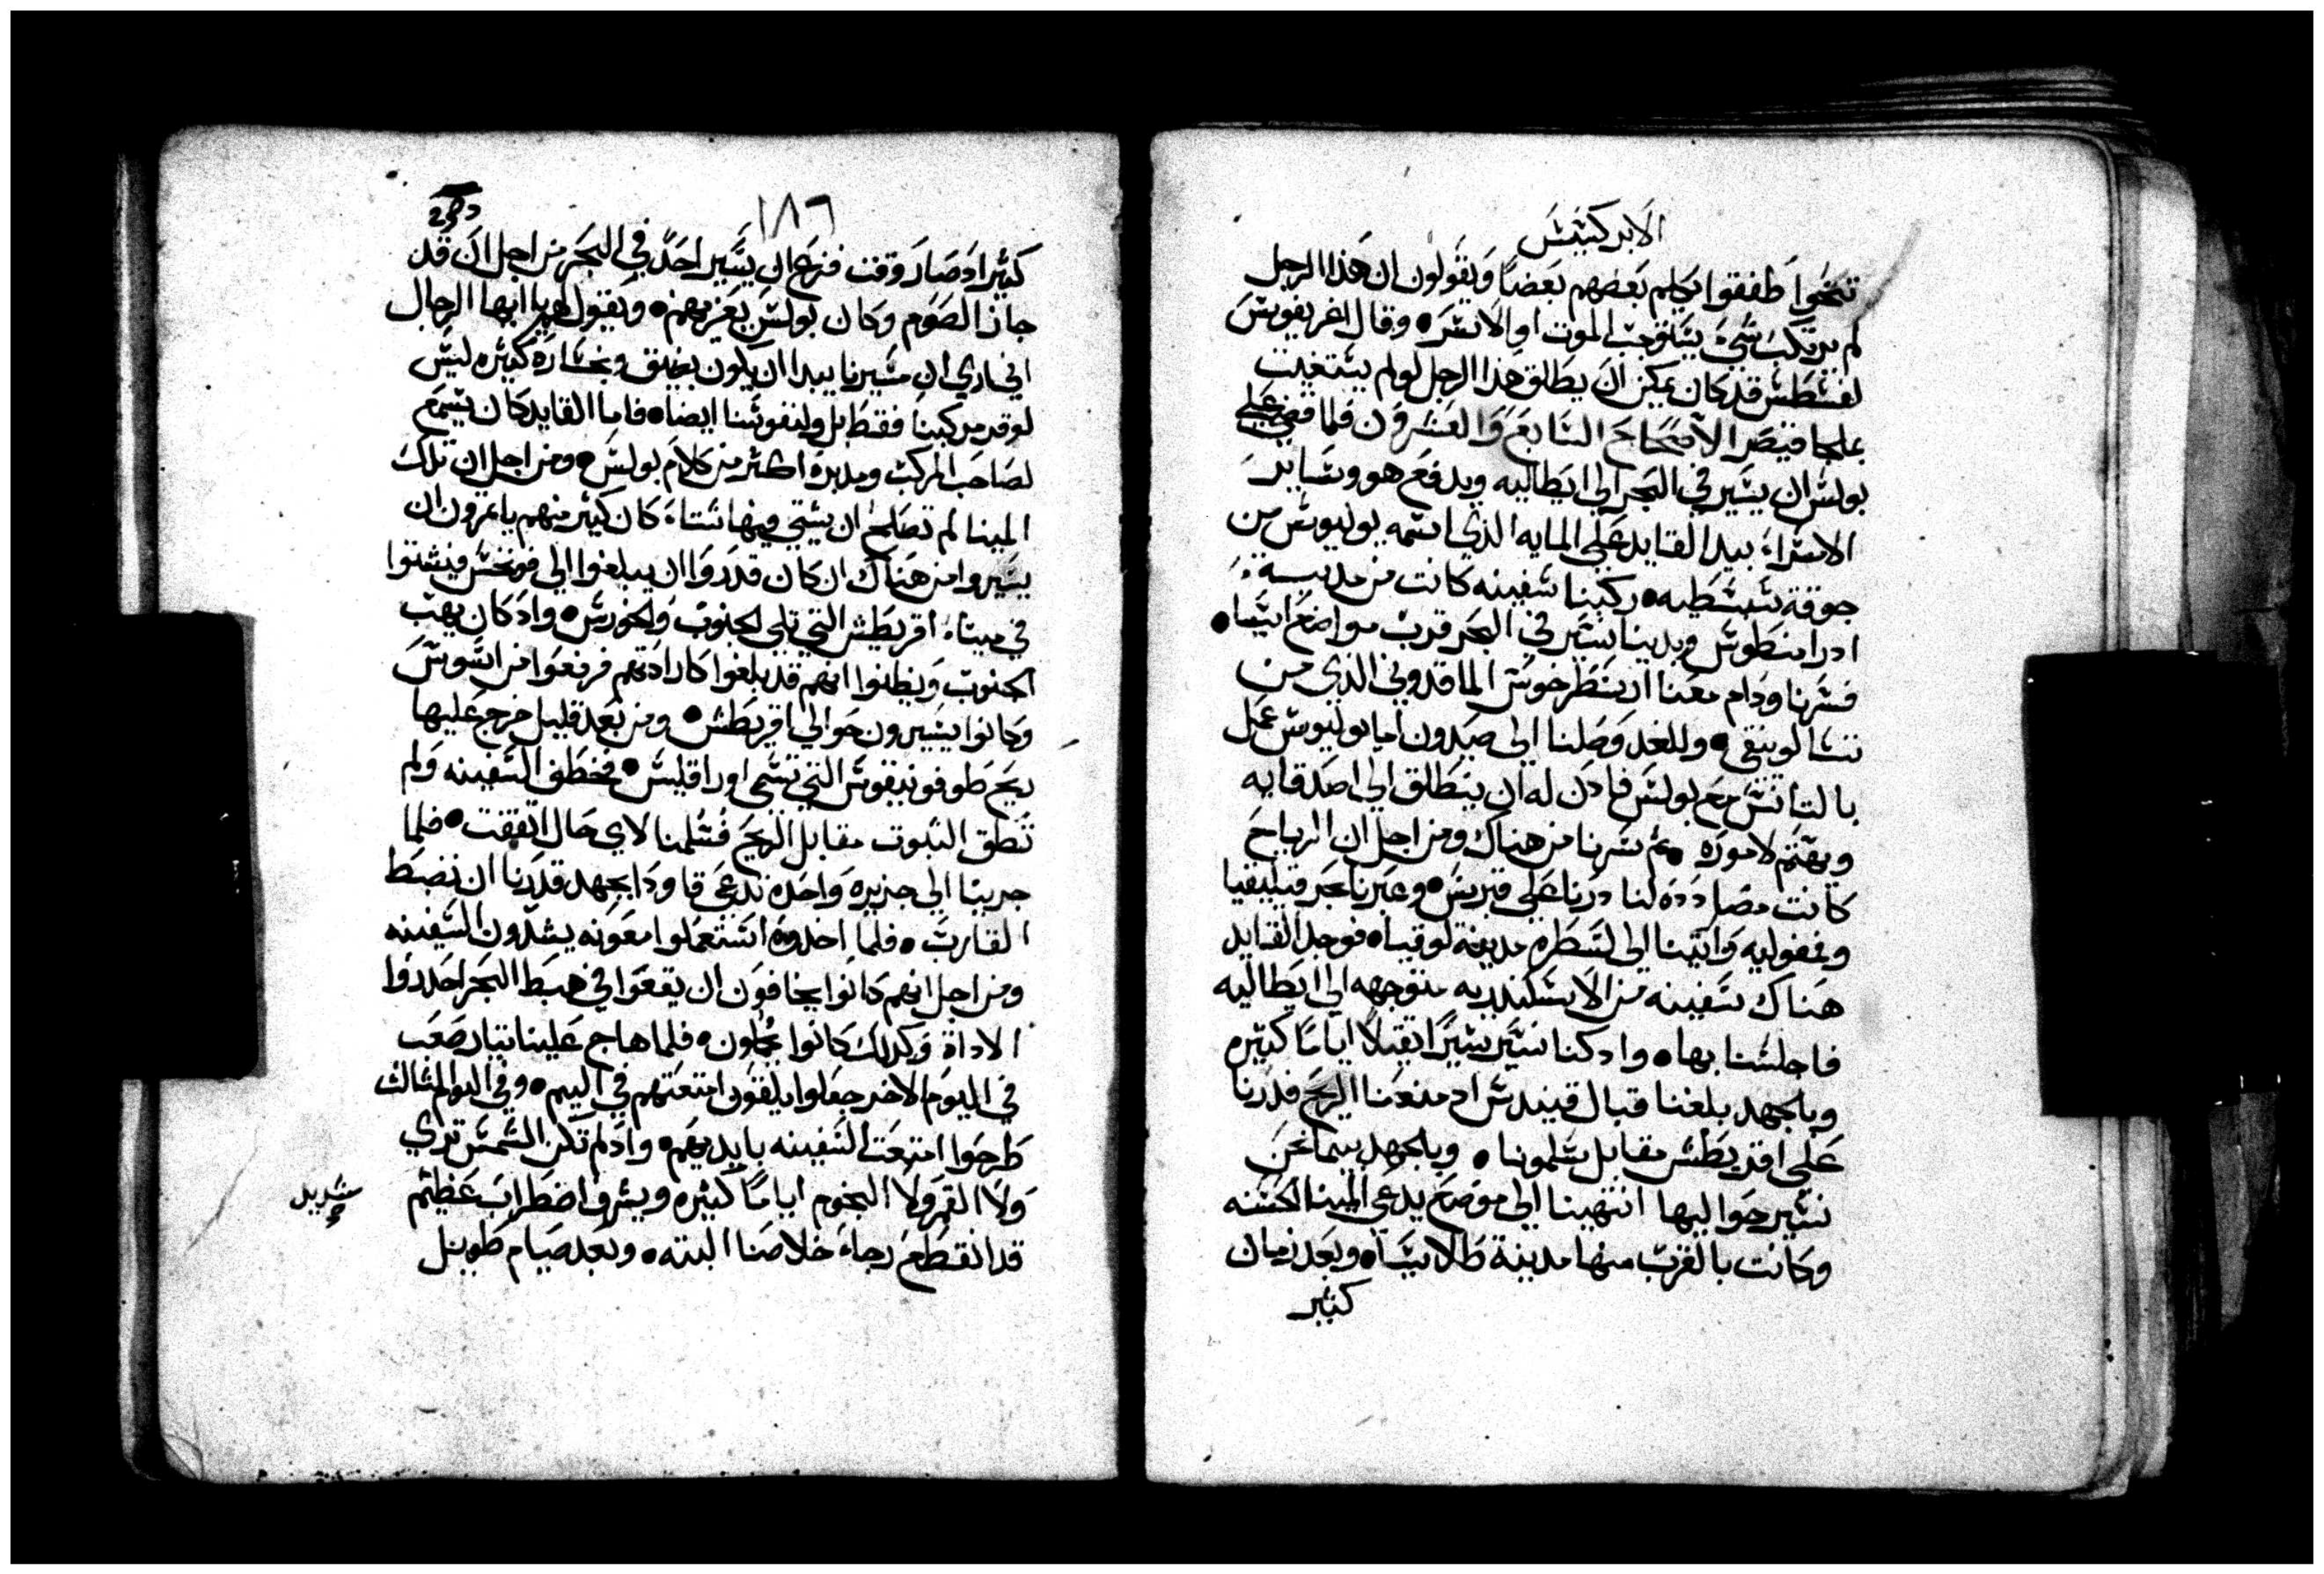 الابركسيس
تنحوا طفقوا يكلم بعضهم بعضًا ويقولون ان هذا الرجل
لم يرتكب شي يستوجب الموت او الاسر • وقال اغريفوس
لفسطس قد كان يمكن ان يطلق هذا الرجل لو لم يستغيث
بلجا قيصر الاصحاح السابع والعشرون فلما قضي علي
بولس ان يسير في البحر الي ايطاليه ويدفع هو وساير
الاسراء بيد القايد علي المايه الذي اسمه يوليوس من
جوقة سبسطيه • ركبنا سفينه كانت من مدينة
ادرامنطوس وبدينا نسير في البحر قرب مواضع اسيا •
فسرنا ودام معنا ارسطرخوس الماقدوني الذي من
تسالونيقي • وللغد وصلنا الي صيدون اما يوليوس عمل
بالتانس مع بولس فادن له ان ينطلق الي اصدقايه
ويهتم لاموره • ثم سرنا من هناك ومن اجل ان الرياح
كانت مصادده لنا درنا علي قبرس • وعبرنا بحر قيليقيا
وفمفوليه واتينا الي لسطره مدينة لوقيا • فوجد القايد
هناك سفينه من الاسكندريه متوجهه الي ايطاليه
فاجلسنا بها • واد كنا نسير سيرًا تقيلًا ايامًا كثيره
وبالجهد بلغنا قبال قنيدس اد منعنا الريح فدرنا
علي اقريطش مقابل سلمونا • وبالجهد بينما نحن
نسير حواليها انتهينا الي موضع يدعي المينا الحسنه
وكانت بالقرب منها مدينة طالاسيا • وبعد زمان
كثير
١٨٦
كثير اد صار وقت فزع ان يسير احد في البحر من اجل ان قد
جاز الصوم وكان بولس يعزيهم • ويقول لهم يا ايها الرجال
اني اري ان مسيرنا يبدا ان يكون بضيق وبخساره كثيره ليس
لوقر مركبنا فقط بل ولنفوسنا ايضا • فاما القايد كان يسمع
لصاحب المركب ومدبره اكثر من كلام بولس • ومن اجل ان تلك
المينا لم تصلح ان يشتي فيها شتاء كان كثير منهم ياتمرون ان
يسيروا من هناك ان كان قدروا ان يبلغوا الي فونخس فيشتوا
في ميناء اقريطش التي تلي الجنوب والخورس • واد كان يهب
الجنوب ويظنوا انهم قد بلغوا كارادتهم فرفعوا من اسوس
وكانوا يسيرون حوالي اقريطش • ومن بعد قليل خرج عليها
ريح طوفونيقوس التي تسمى اوراقليس • فخطف السفينه ولم
تطق الثبوت مقابل الريح فسلمنا لاي حال اتفقت • فلما
جرينا الي جزيره واحده تدعي قاودا بجهد قدرنا ان نضبط
القارب • فلما اخدوه استعملوا معونه يشدون السفينه
ومن اجل انهم كانوا يخافون ان يقعوا في هبط البحر احدروا
الاداة وكدلك كانوا يحملون • فلما هاج علينا تيار صعب
في اليوم الاخر جعلوا يلقون امتعتهم في اليم • وفي اليوم الثالث
طرحوا امتعت السفينه بايديهم • واد لم تكن الشمس تري
ولا القمر ولا النجوم ايامًا كثيره ويشرف اضطراب عظيم
شديد
قد انقطع رجاء خلاصنا البته • وبعد صيام طويل